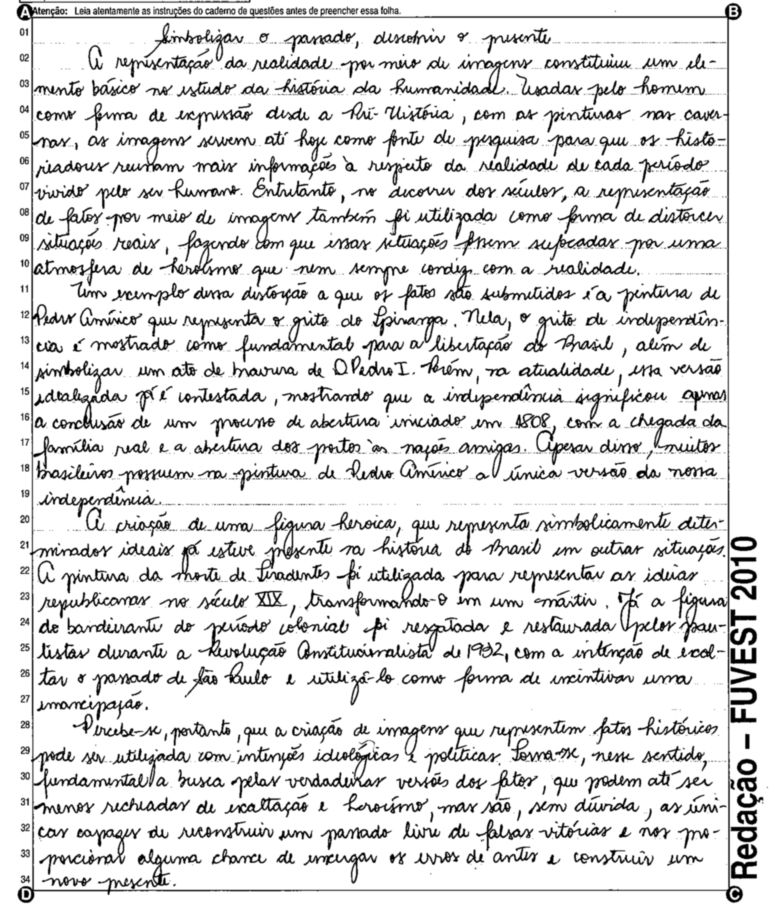 A Atenção: Leia atentamente as instruções do caderno de questões antes de preencher essa folha. B
01 Simbolizar o passado, descobrir o presente
02 A representação da realidade por meio de imagens constituiu um ele-
03 mento básico no estudo da história da humanidade. Usadas pelo homem
04 como forma de expressão desde a Pré-História, com as pinturas nas caver-
05 nas, as imagens servem até hoje como fonte de pesquisa para que os histo-
06 riadores reunam mais informações à respeito da realidade de cada período
07 vivido pelo ser humano. Entretanto, no decorrer dos séculos, a representação
08 de fatos por meio de imagens também foi utilizada como forma de distorcer
09 situações reais, fazendo com que essas situações fossem sufocadas por uma
10 atmosfera de heroísmo que nem sempre condiz com a realidade.
11 Um exemplo dessa distorção a que os fatos são submetidos é a pintura de
12 Pedro Américo que representa o grito do Ipiranga. Nela, o grito de independên-
13 cia é mostrado como fundamental para a libertação do Brasil, além de
14 simbolizar um ato de bravura de D.Pedro I. Porém, na atualidade, essa versão
15 idealizada já é contestada, mostrando que a independência significou apenas
16 a conclusão de um processo de abertura iniciado em 1808, com a chegada da
17 família real e a abertura dos portos às nações amigas. Apesar disso, muitos
18 brasileiros possuem na pintura de Pedro Américo a única versão da nossa
19 independência.
20 A criação de uma figura heroica, que representa simbolicamente deter-
21 minados ideais já esteve presente na história do Brasil em outras situações.
22 A pintura da morte de Tiradentes foi utilizada para representar as ideias
23 republicanas no século XIX, transformando-o em um mártir. Já a figura
24 do bandeirante do período colonial foi resgatada e restaurada pelos pau-
25 listas durante a Revolução Constitucionalista de 1932, com a intenção de exal-
26 tar o passado de São Paulo e utilizá-lo como forma de incentivar uma
27 emancipação.
28 Percebe-se, portanto, que a criação de imagens que representem fatos históricos
29 pode ser utilizada com intenções ideológicas e políticas. Torna-se, nesse sentido,
30 fundamental a busca pelas verdadeiras versões dos fatos, que podem até ser
31 menos recheadas de exaltação e heroísmo, mas são, sem dúvida, as úni-
32 cas capazes de reconstruir um passado livre de falsas vitórias e nos pro-
33 porcionar alguma chance de enxergar os erros de antes e construir um
34 novo presente.
D C
Redação – FUVEST 2010